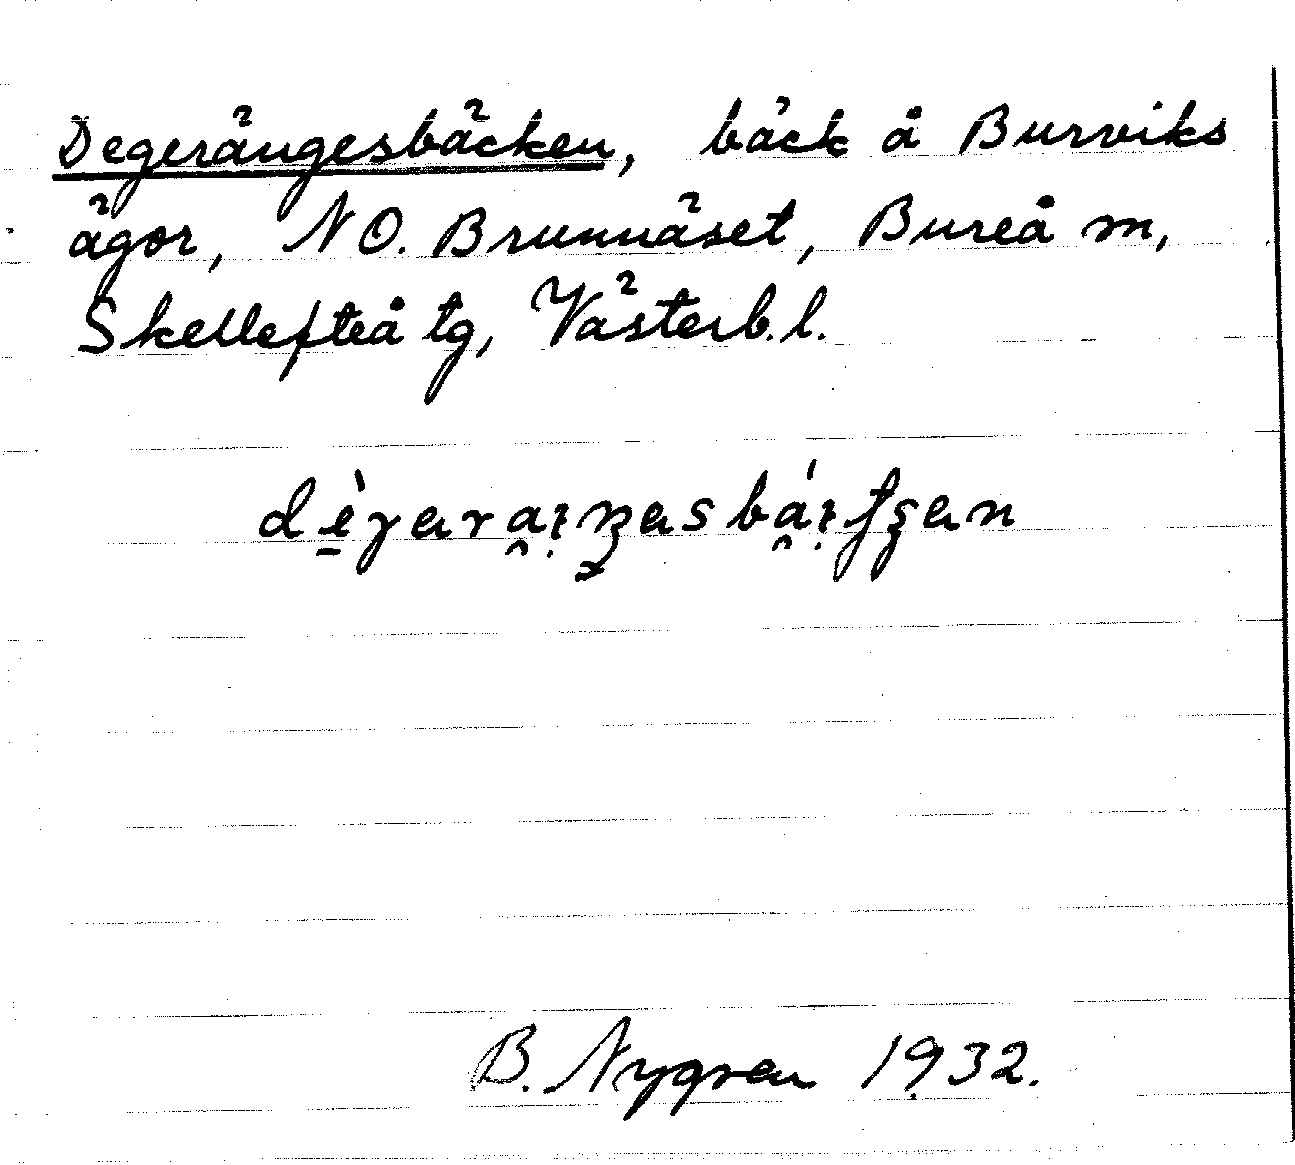 Degerängesbäcken, bäck å Burviks
ägor, NO. Brunnäset, Bureå m,
Skellefteå tg, Västerb.l.
B. Nygren 1932.